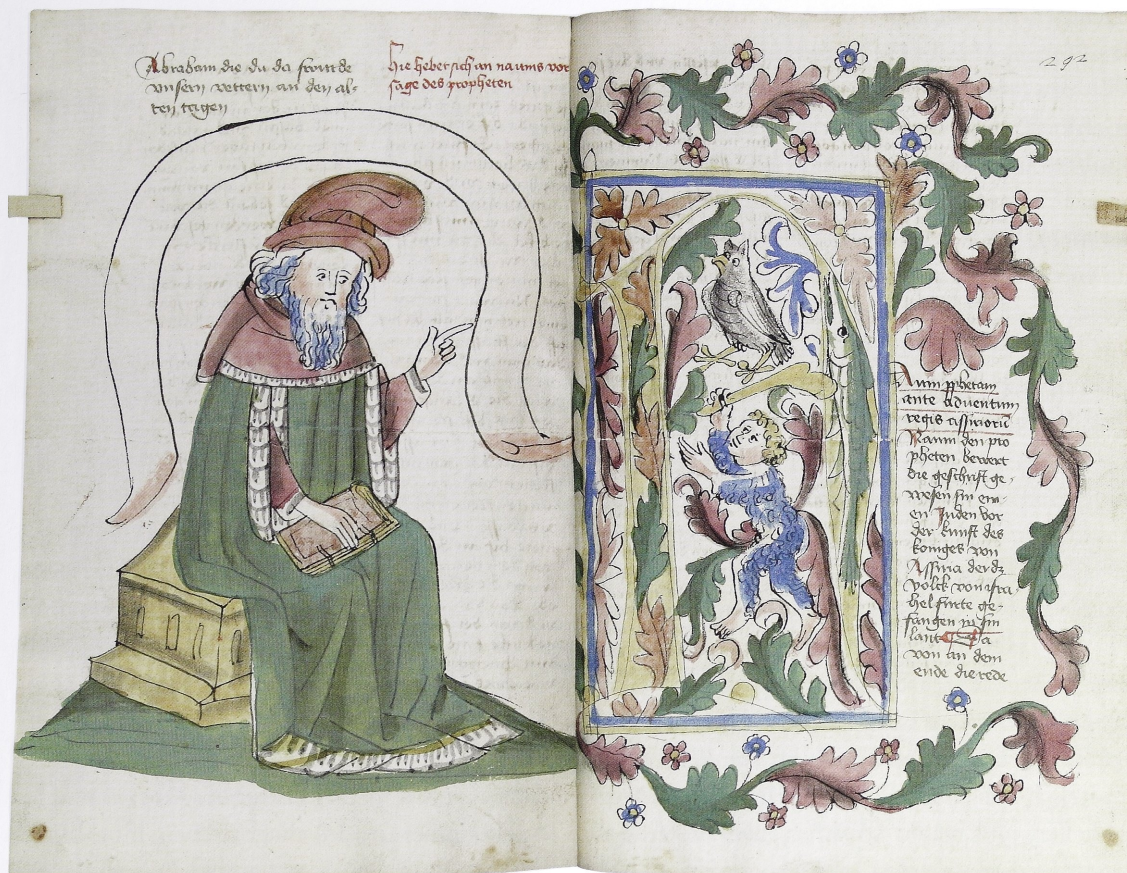 Abraham die du da swurde
vnsern vettern an den al-
ten tagen
Hie hebet sich an naums vor
sage des propheten
292
Aum prophetam
ante adventum
regis assiriorum
Naum den pro
pheten bewert
die geschrift ge-
wesen sin ein-
en Juden vor
der kunft des
koniges von
Assiria der dz
volck von isra
hel furte ge-
fangen in sin
lant
von an dem
ende die rede